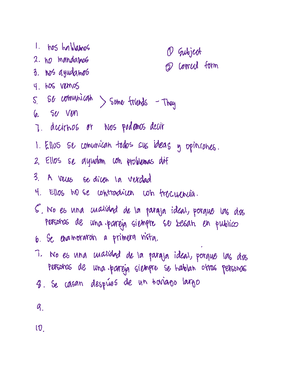 1. nos hablamos
① Subject
2. no mandamos
② correct form
3. nos ayudamos
4. nos vemos
5. se comunican > Some friends - They
6. se ven
7. decirnos or Nos podemos decir
1. Ellos se comunican todos sus ideas y opiniones.
2. Ellos se ayudan con problemas dif
3. A veces se dicen la verdad
4. Ellos no se contradicen con frecuencia.
5. No es una cualidad de la pareja ideal, porque las dos
personas de una pareja siempre se besan en publico
6. Se enamoraron a primera vista.
7. No es una cualidad de la pareja ideal, porque las dos
personas de una pareja siempre se hablan otras personas
8. Se casan despúes de un largo
9.
10.